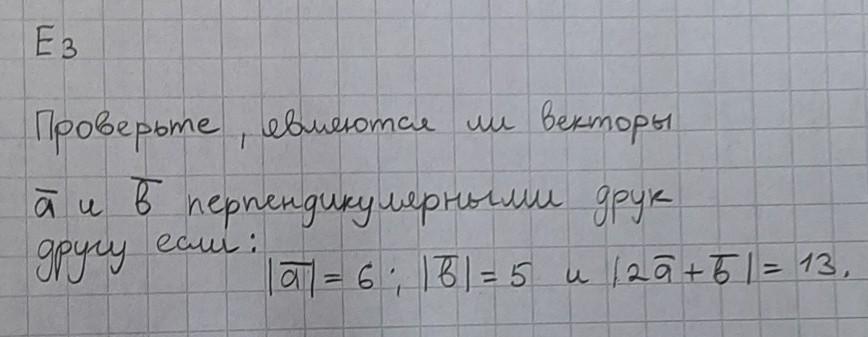 E3
Проверьте, евлеются ли векторы
a̅ и b̅ перпендикулерными друк
другу если:
|a̅| = 6; |b̅| = 5 и |2a̅ + b̅| = 13.